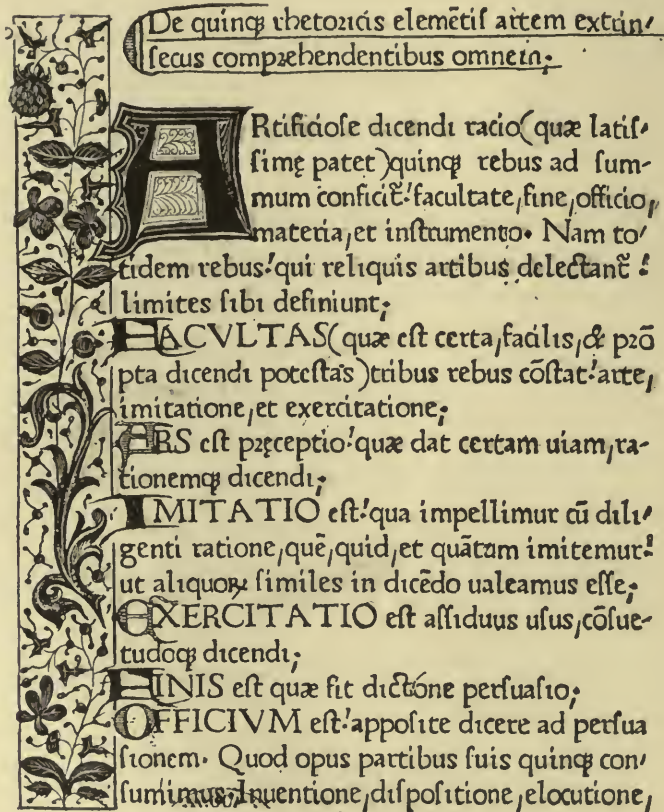 De quinqꝫ rhetoꝛicis elemētiſ artem extrin⸗
ſecus compꝛehendentibus omnem;
ARtificioſe dicendi racio(quæ latiſ⸗
ſimę patet)quinqꝫ rebus ad ſum-
mum conficit̄:facultate,fine,officio,
materia,et inſtrumento. Nam to⸗
tidem rebus:qui reliquis artibus delectant̄:
limites ſibi definiunt;
FACVLTAS(quæ eſt certa,facilis,& pꝛō
pta dicendi poteſtas)tribus rebus cōſtat:arte,
imitatione,et exercitatione;
ARS eſt pꝛęceptio:quæ dat certam uiam,ra-
tionemqꝫ dicendi;
IMITATIO eſt:qua impellimur cū dili⸗
genti ratione,quē,quid,et quātum imitemur:
ut aliquoꝝ ſimiles in dicēdo ualeamus eſſe;
EXERCITATIO eſt aſſiduus uſus,cōſue-
tudoqꝫ dicendi;
FINIS eſt quæ fit dictōne perſuaſio;
OFFICIVM eſt:appoſite dicere ad perſua
ſionem. Quod opus partibus ſuis quinqꝫ con⸗
ſumimus:Inuentione,diſpoſitione,elocutione,